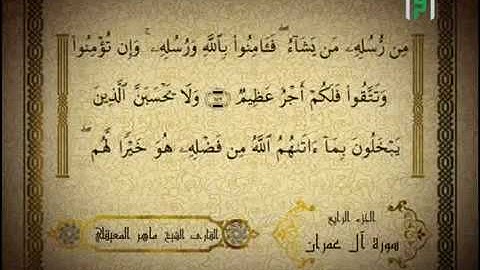 مِن رُّسُلِهِۦ مَن يَشَآءُ ۖ فَـَٔامِنُوا۟ بِٱللَّهِ وَرُسُلِهِۦ ۚ وَإِن تُؤْمِنُوا۟
وَتَتَّقُوا۟ فَلَكُمْ أَجْرٌ عَظِيمٌ ۝١٧٩ وَلَا يَحْسَبَنَّ ٱلَّذِينَ
يَبْخَلُونَ بِمَآ ءَاتَىٰهُمُ ٱللَّهُ مِن فَضْلِهِۦ هُوَ خَيْرًا لَّهُم ۖ
الجزء الرابع
سورة آل عمران
القارئ الشيخ ماهر المعيقلي